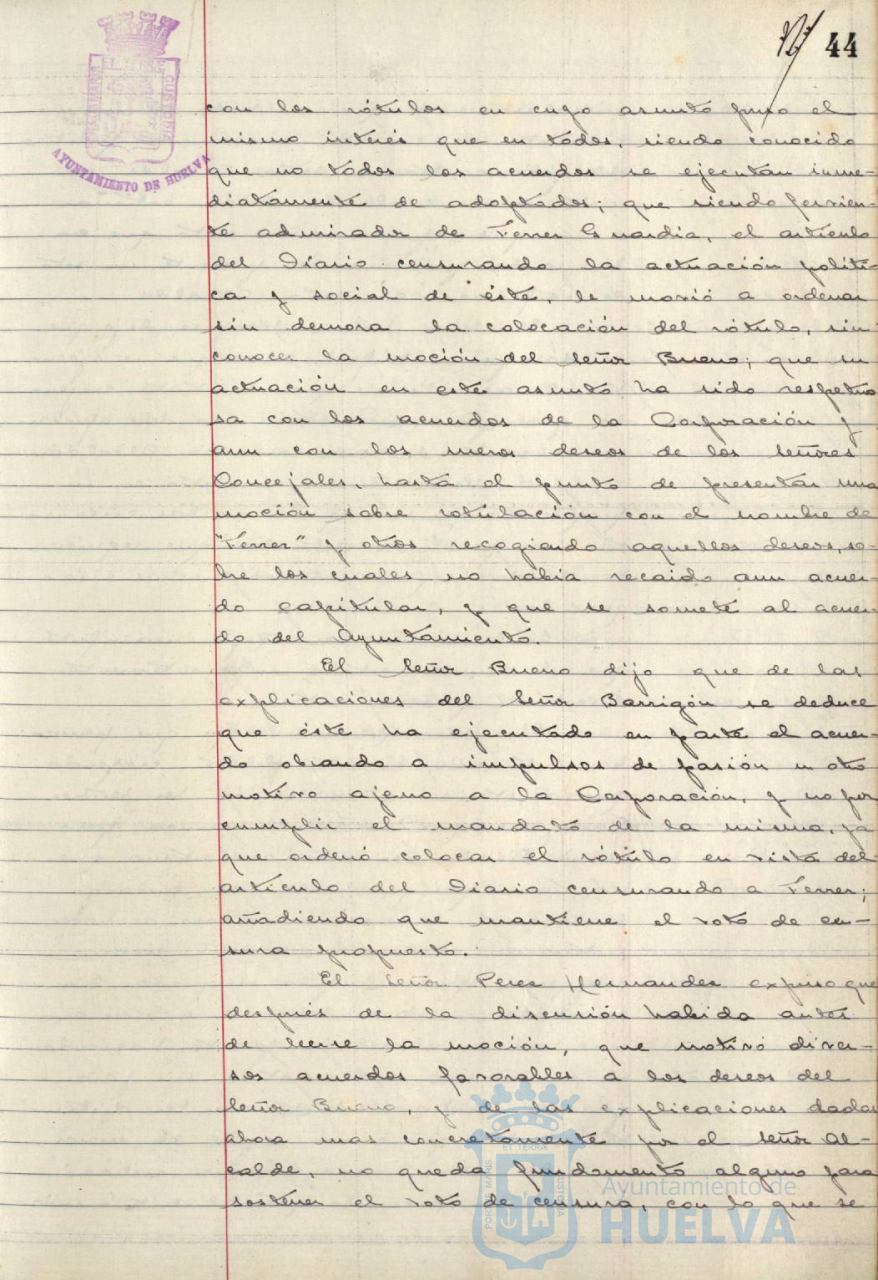 44
AYUNTAMIENTO DE HUELVA
con los rótulos en cuyo asunto puso el
mismo interés que en todos, siendo conocido
que no todos los acuerdos se ejecutan inme-
diatamente de adoptados; que siendo fervien-
te admirador de Ferrer Guardia, el artículo
del Diario censurando la actuación políti-
ca y social de éste, le movió a ordenar
sin demora la colocación del rótulo, sin
conocer la moción del Señor Bueno; que su
actuación en este asunto ha sido respetuo
sa con los acuerdos de la Corporación y
aun con los meros deseos de los Señores
Concejales, hasta el punto de presentar una
moción sobre rotulación con el nombre de
"Ferrer" y otros recogiendo aquellos deseos, so-
bre los cuales no había recaido aun acuer-
do capitular, y que se somete al acuer-
do del Ayuntamiento.
El Señor Bueno dijo que de las
explicaciones del Señor Barrigón se deduce
que éste ha ejecutado en parte el acuer-
do obrando a impulsos de pasión u otro
motivo ajeno a la Corporación, y no por
cumplir el mandato de la misma, ya
que ordenó colocar el rótulo en vista del
artículo del Diario censurando a Ferrer;
añadiendo que mantiene el voto de cen-
sura propuesto.
El Señor Peres Hernandes expuso que
después de la discusión habida antes
de leerse la moción, que motivó diver-
sos acuerdos favorables a los deseos del
Señor Bueno, y de las explicaciones dadas
ahora mas concretamente por el Señor Al-
calde, no queda fundamento alguno para
sostener el voto de censura, con lo que se
Ayuntamiento de
HUELVA